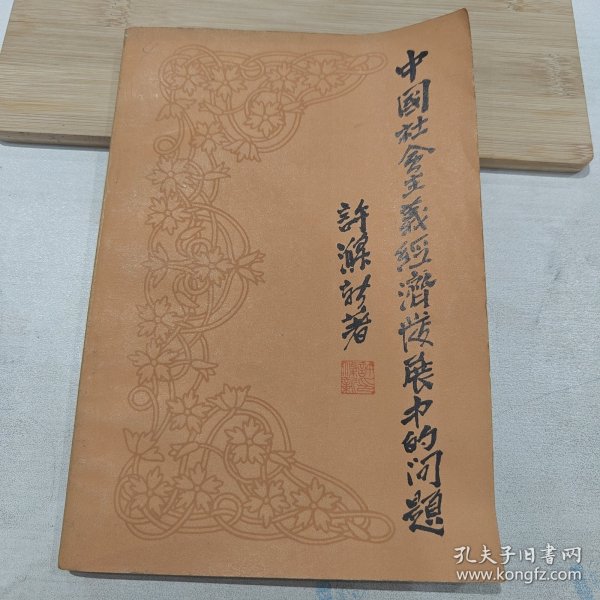 中國社會主義經濟發展中的問題
許滌新著
孔夫子旧书网
www.kongfz.com